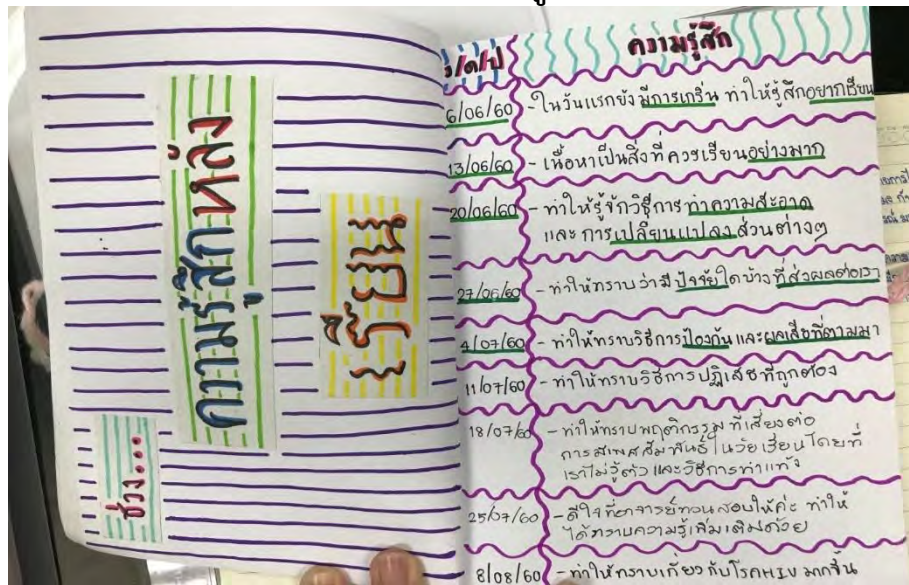 ช่วง...
ความรู้สึกหลัง
เรียน
ว/ด/ป
ความรู้สึก
6/06/60 - ในวันแรกยังมีการเกริ่น ทำให้รู้สึกอยากเรียน
13/06/60 - เนื้อหาเป็นสิ่งที่ควรเรียนอย่างมาก
20/06/60 - ทำให้รู้จักวิธีการทำความสะอาด
และการเปลี่ยนแปลงส่วนต่างๆ
27/06/60 - ทำให้ทราบว่ามีปัจจัยใดบ้างที่ส่งผลต่อเรา
4/07/60 - ทำให้ทราบวิธีการป้องกันและผลเสียที่ตามมา
11/07/60 - ทำให้ทราบวิธีการปฏิเสธที่ถูกต้อง
18/07/60 - ทำให้ทราบพฤติกรรมที่เสี่ยงต่อ
การมีเพศสัมพันธ์ในวัยเรียนโดยที่
เราไม่รู้ตัว และวิธีการทำแท้ง
25/07/60 - ดีใจที่อาจารย์ทวนสอบให้ค่ะ ทำให้
ได้ทราบความรู้เพิ่มเติมด้วย
8/08/60 - ทำให้ทราบเกี่ยวกับโรคHIV มากขึ้น